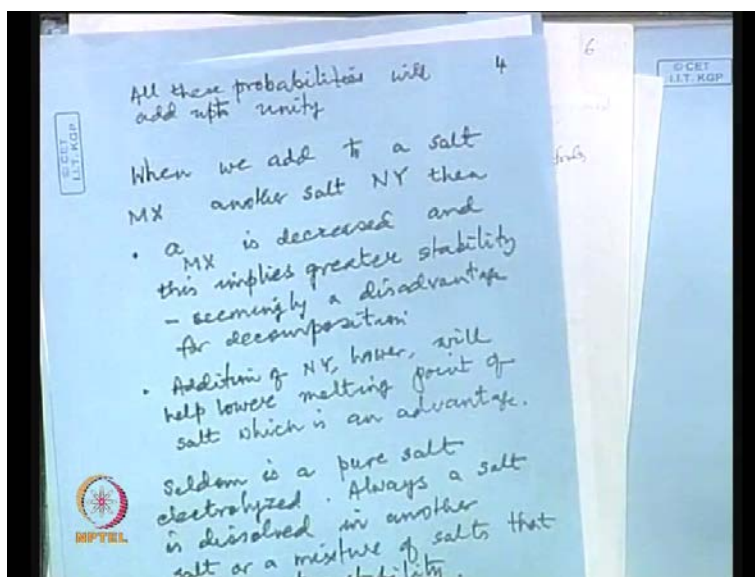 4
All these probabilities will
add upto unity
When we add to a salt
MX another salt NY then
• a MX is decreased and
this implies greater stability
- seemingly a disadvantage
for decomposition.
• Addition of NY, hower, will
help lower melting point of
salt which is an advantage.
Seldom is a pure salt
electrolyzed. Always a salt
is dissolved in another
salt or a mixture of salts that
stability.
6
© CET
I.I.T. KGP
© CET
I.I.T. KGP
NPTEL